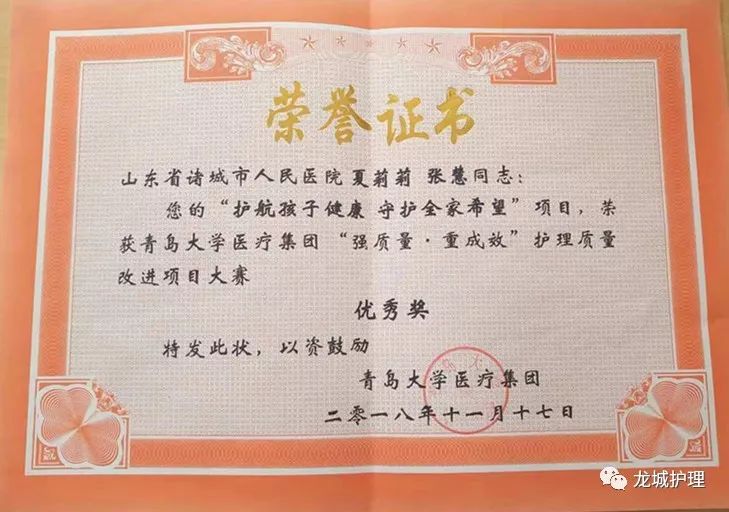 荣誉证书
山东省诸城市人民医院 夏莉莉 张慧同志：
您的“护航孩子健康 守护全家希望”项目，荣
获青岛大学医疗集团 “强质量·重成效”护理质量
改进项目大赛
优秀奖
特发此状，以资鼓励
青岛大学医疗集团
二零一八年十一月十七日
龙城护理